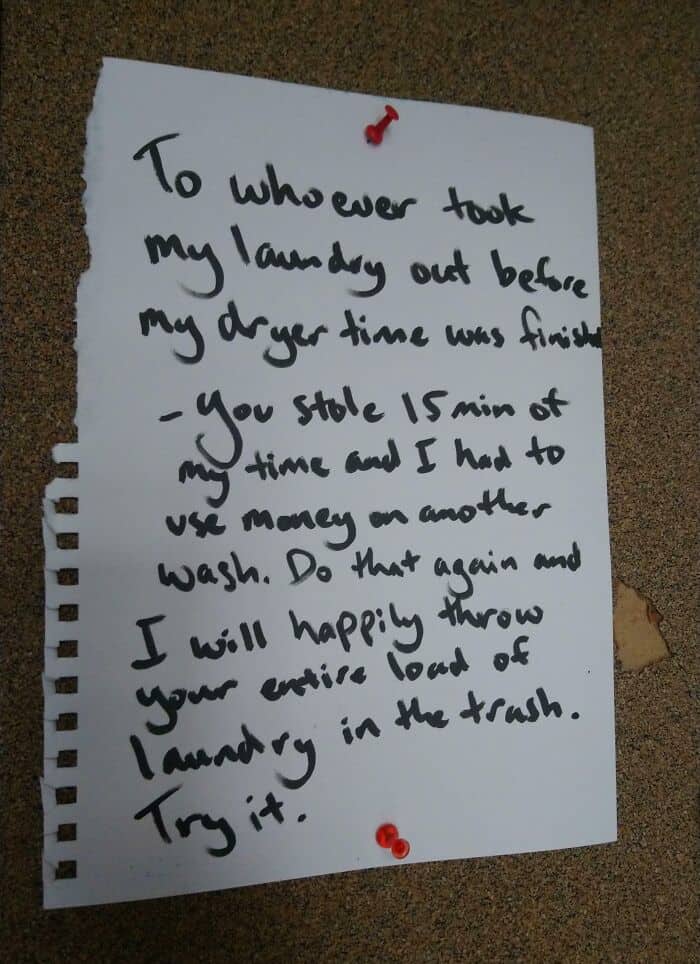 To whoever took
my laundry out before
my dryer time was finishe
- You stole 15 min of
my time and I had to
use money on another
wash. Do that again and
I will happily throw
your entire load of
laundry in the trash.
Try it.